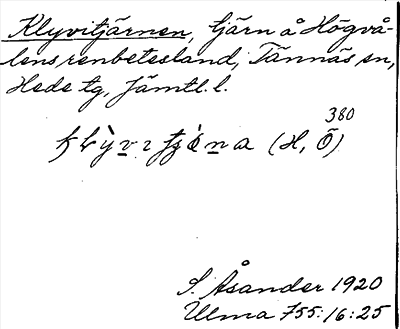 Klyvitjärnen, tjärn å Högvå-
lens renbetesland, Tännäs sn,
Hede tg, Jämtl. l.
380
(H, Ö)
S. Åsander 1920
Ulma 755:16:25